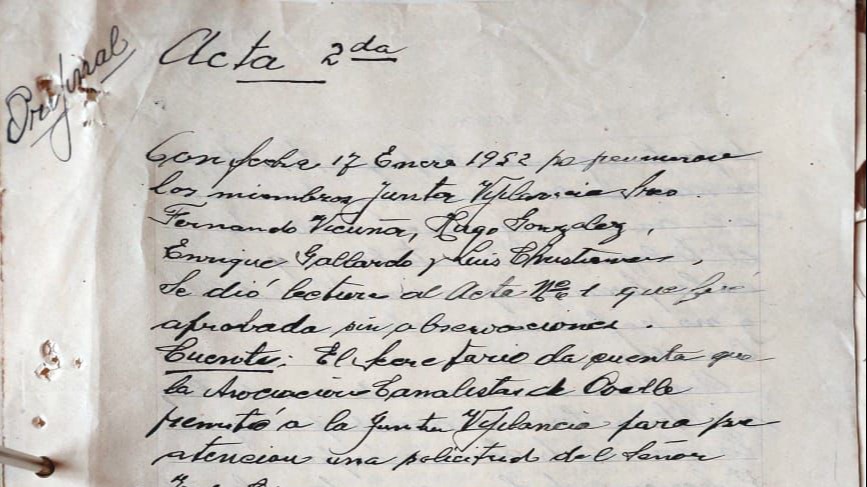 Original
Acta 2da
Con fecha 17 Enero 1952 se reunieron
los miembros Junta Vigilancia Sres.
Fernando Vicuña, Hugo Gonzalez,
Enrique Gallardo y Luis
Se dió lectura al Acta Nº 1 que fué
aprobada sin observaciones.
Cuenta: El Secretario da cuenta que
la Asociacion Canalistas de Ovalle
remitió a la Junta Vigilancia para su
atencion una solicitud del Señor